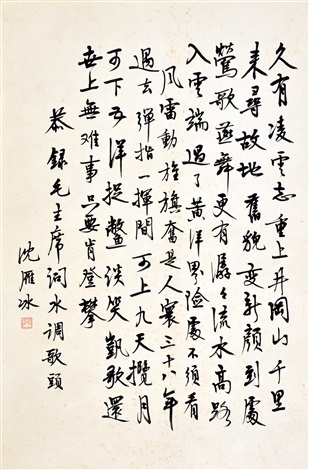 久有凌雲志重上井岡山千里
来尋故地 舊貌變新顔到處
鶯歌燕舞更有潺々流水高路
入雲端過了黄洋界險處不須看
風雷動旌旗奮是人寰三十八年
過去彈指一揮間可上九天攬月
可下五洋捉鱉談笑凱歌還
世上無难事只要肯登攀
恭録毛主席詞水调歌頭
沈雁冰